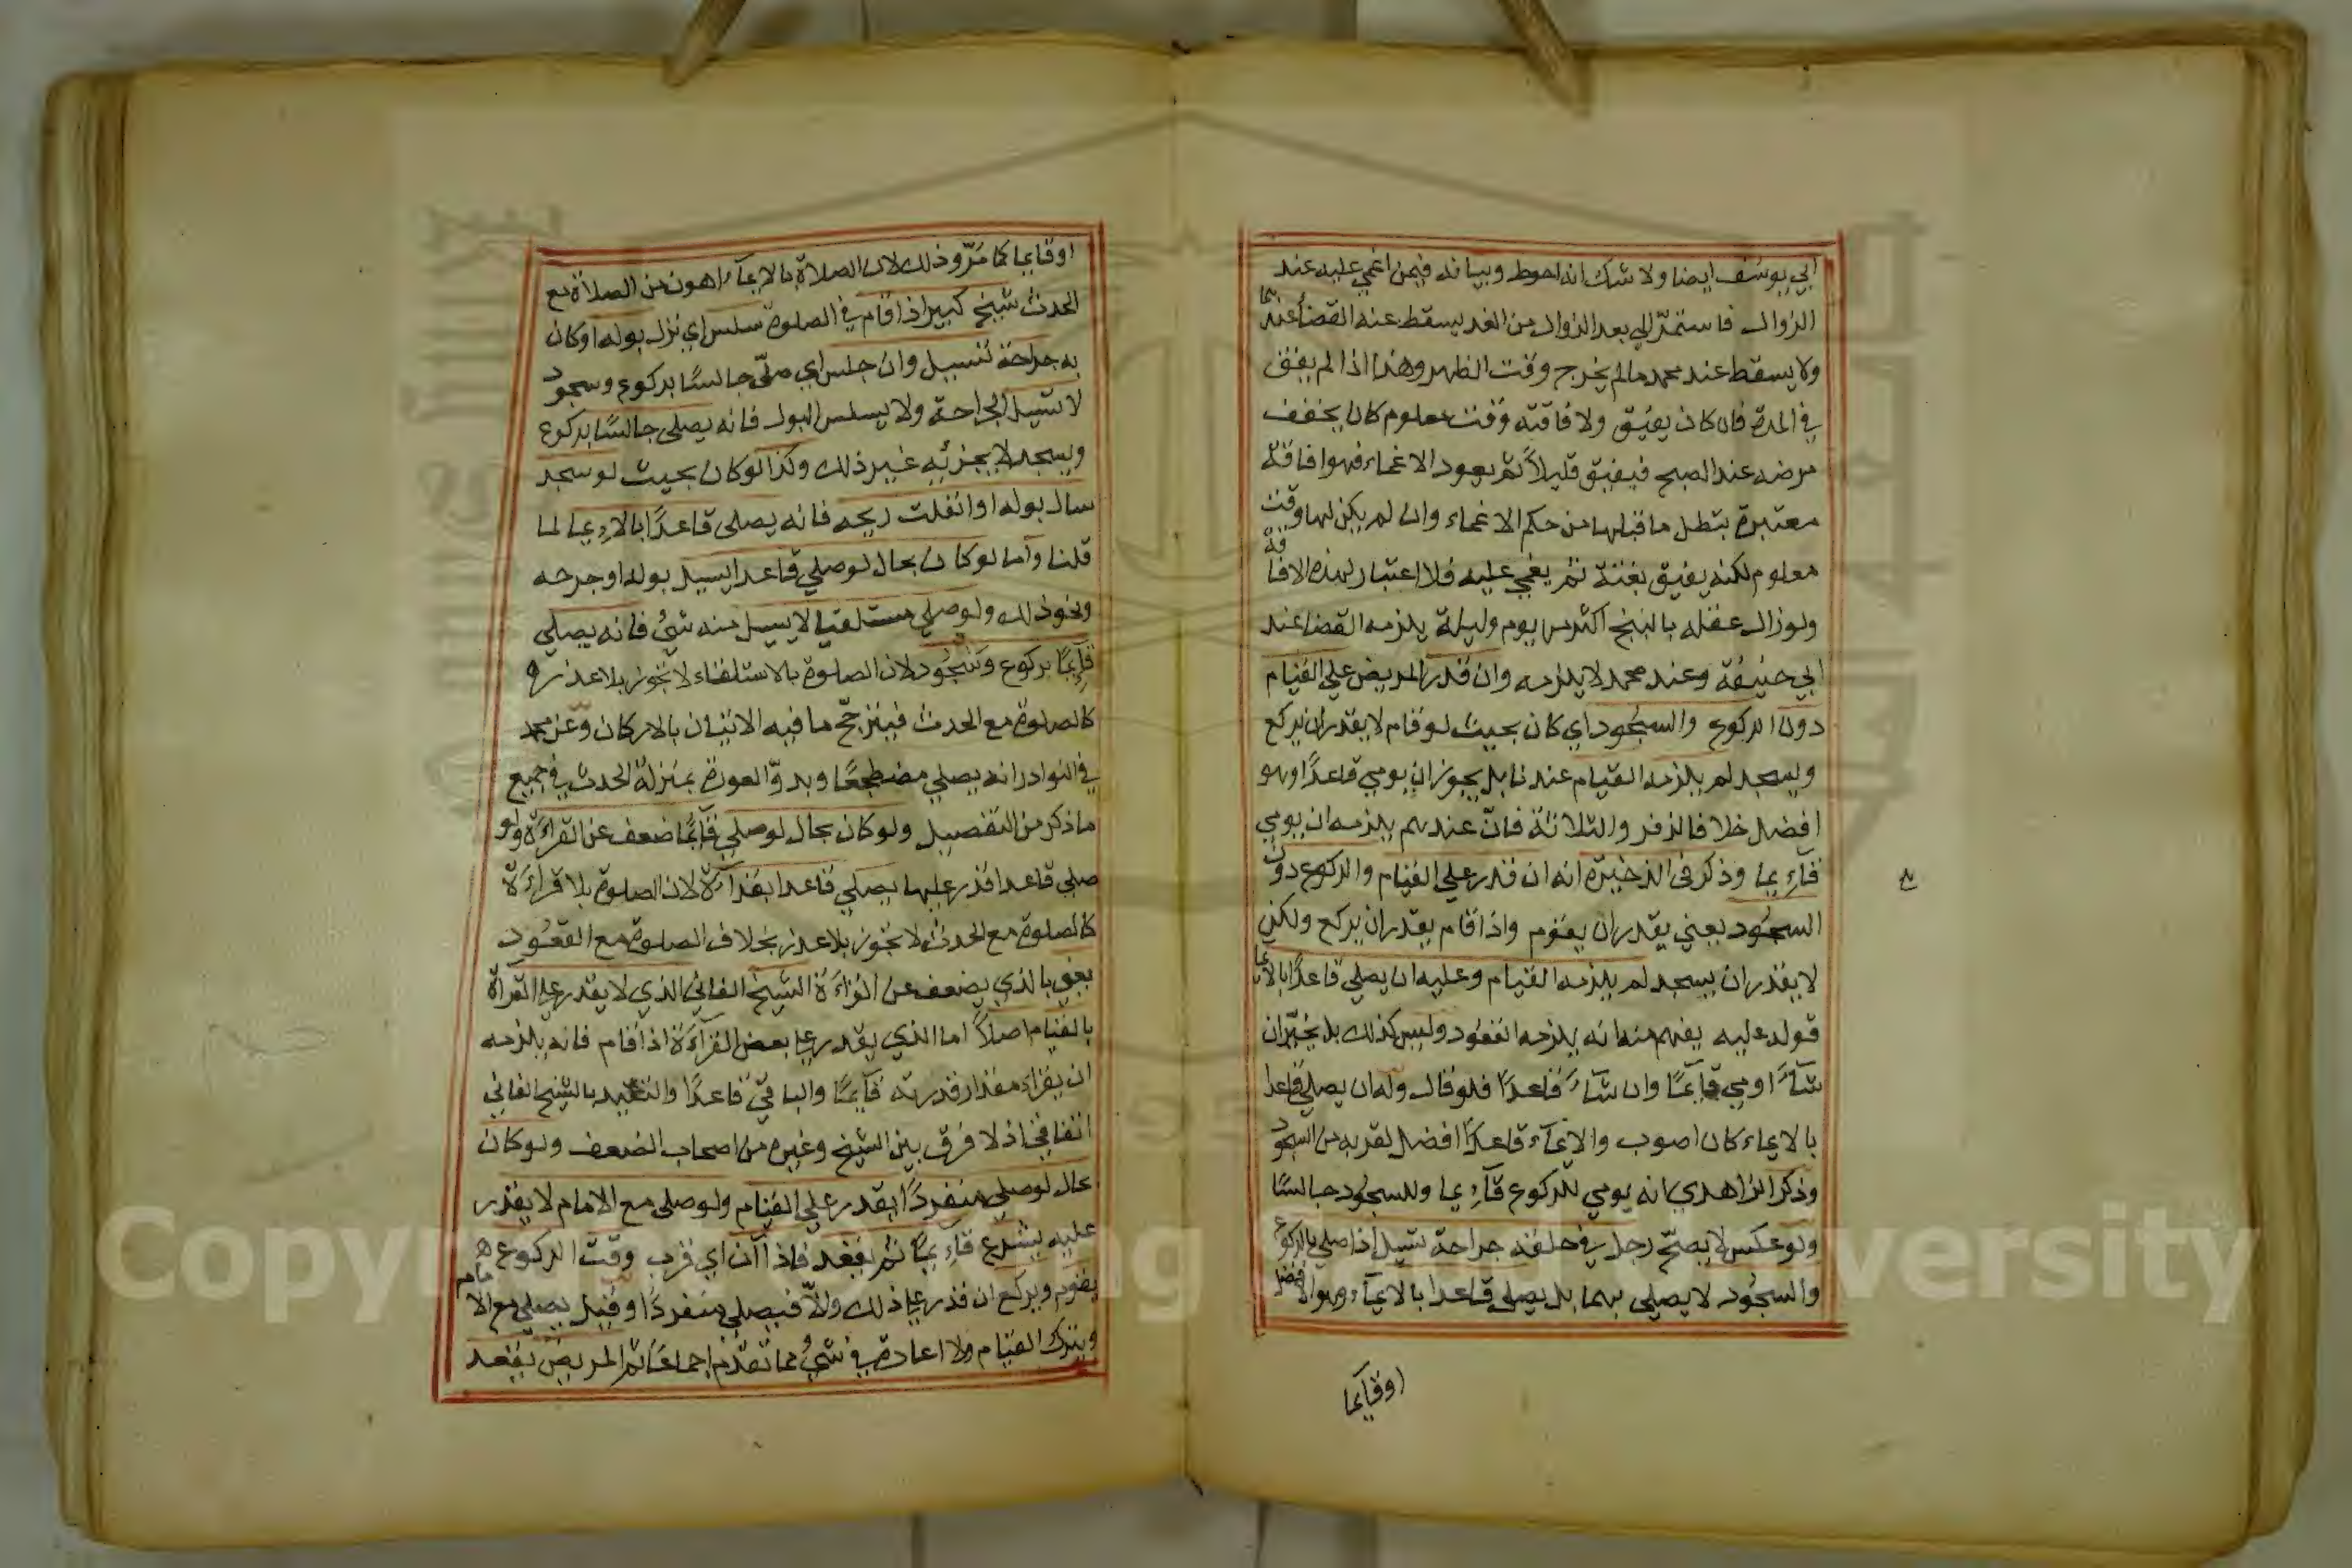 ابي يوسف ايضا ولا شك انه احوط وبيانه فيمن اغمي عليه عند
الزوال فاستمر الي بعد الزوال من الغد يسقط عنه القضاء عندهما
ولا يسقط عند محمد مالم يخرج وقت الظهر وهذا اذا لم يفق
في المدة فان كان يفيق ولافاقته وقت معلوم كان يخفف
مرضه عند الصبح فيفيق قليلاً ثم يعود الاغماء فهو افاقة
معتبرة بتطل ما قبلها من حكم الاغماء وان لم يكن لها وقت
معلوم لكنه يفيق بغتة ثم يغمي عليه فلا اعتبار لهذه الافاقة
ولو زال عقله بالبنج اكثر من يوم وليلة يلزمه القضا عند
ابي حنيفة وعند محمد لا يلزمه وان قدر المريض علي القيام
دون الركوع والسجود اي كان بحيث لو قام لا يقدر ان يركع
ويسجد لم يلزمه القيام عندنا بل يجوز ان يومي قاعدًا وهو
افضل خلافا لزفر والثلاثة فانّ عندهم يلزمه ان يومي
قاءيما وذكر في الذخيرة انه ان قدر علي القيام والركوع دون
السجود يعني يقدر ان يقوم واذا قام يقدر ان يركع ولكن
لا يقدر ان يسجد لم يلزمه القيام وعليه ان يصلي قاعدًا بالايما
قوله عليه يفهم منه انه يلزمه القعود وليس كذلك بل يخيّر ان
شآءَ اومي قآئمًا وان شآءَ قاعدًا فلو قال وله ان يصلي قاعدا
بالايماء كان اصوب والايمآء قاعدًا افضل لقربه من السجود
وذكر الزاهدي انه يومي للركوع قآءيما وللسجود جالسًا
ولو عكس لا يصحّ رجل في حلقه جراحة تسيل اذا صلي بالركوع
والسجود لا يصلي بهما بل يصلي قاعدا بالايمآء وهو الافضل
اوقآيما
اوقايما كما مَرّ وذلك لان الصلاة بالايمآء اهون من الصلاة مع
الحدث شيخ كبير اذا قام في الصلوة سلس اي نزل بوله او كان
به جراحة تسيل وان جلس اي صلّي جالسًا بركوع وسجود
لا تسيل الجراحة ولا يسلس البول فانه يصلي جالسًا بركوع
ويسجد لا يجزئه غير ذلك وكذا لو كان بحيث لو سجد
سال بوله او انفلت ريحه فانه يصلي قاعدًا بالاءيما لما
قلنا وآما لو كان بحال لو صلي قاعدا يسيل بوله او جرحه
ونحو ذلك ولو صلي مستلقيا لا يسيل منه شئ فانه يصلي
قآيمًا بركوع وسجود لان الصلوة بالاستلقاء لا تجوز بلا عذر
كالصلوة مع الحدث فيترجّح ما فيه الاتيان بالاركان وعن محمد
في النوادر انه يصلي مضطجعًا وبدوّ العورة بمنزلة الحدث في جميع
ما ذكر من التفصيل ولو كان بحال لو صلي قآئمًا ضعف عن القرآءة ولو
صلي قاعدا قدر عليها يصلي قاعدا بقرآءة لان الصلوة بلا قرآءة
كالصلوة مع الحدث لا تجوز بلا عذر بخلاف الصلوة مع القعود
يعني بالذي يضعف عن القرآءة الشيخ الفاني الذي لا يقدر علي القرآة
بالقيام اصلاً اما الذي يقدر علي بعض القرآءة اذا قام فانه يلزمه
ان يقراء مقدار قدرته قآيمًا والباقي قاعدًا والتقييد بالشيخ الفاني
اتفاقي اذ لا فرق بين الشيخ وغيره من اصحاب الضعف ولو كان
بحال لو صلي منفردًا يقدر علي القيام ولو صلي مع الامام لا يقدر
عليه يشرع قاءيمًا ثم يقعد فاذا آن اي قرب وقت الركوع
يقوم ويركع ان قدر علي ذلك والّا فيصلي منفردًا وقيل يصلي مع الامام
ويترك القيام ولا اعادة في شئ مما تقدم اجماعًا ثم المريض يقعد